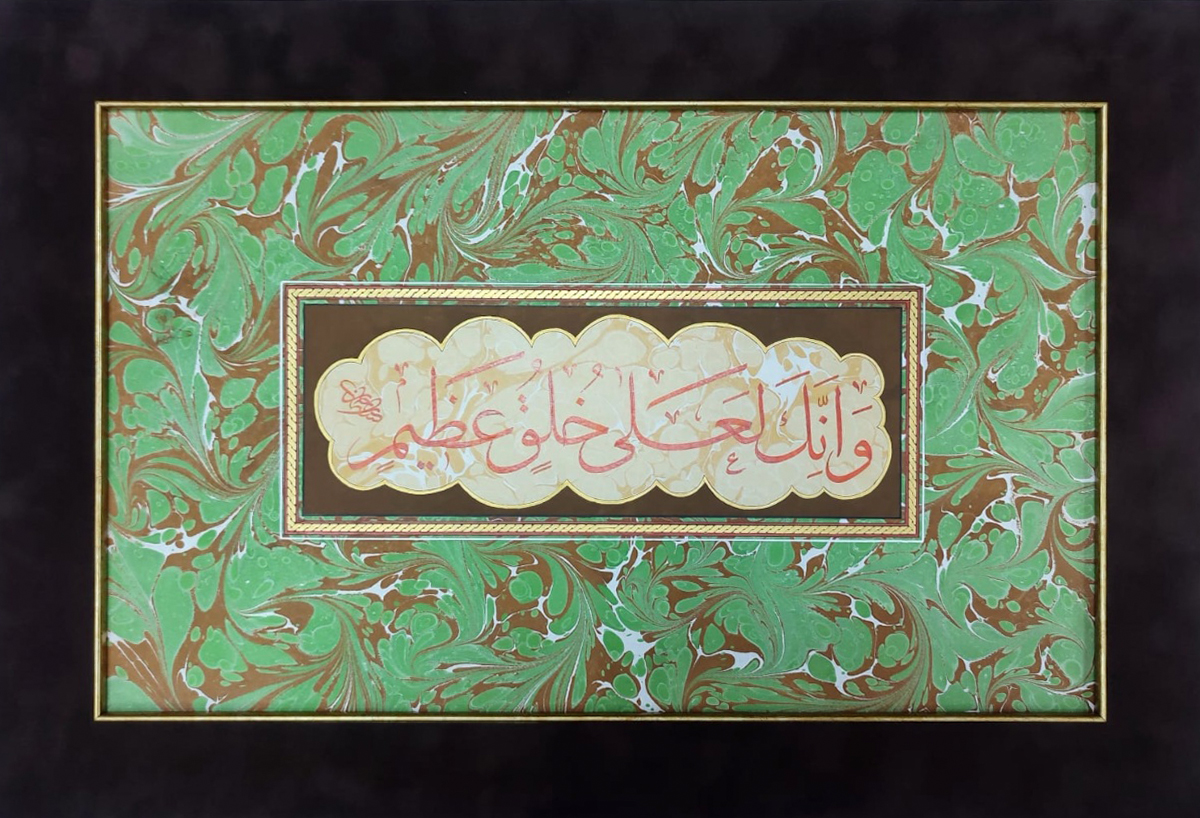 وَاِنَّكَ لَعَلٰى خُلُقٍ عَظٖيمٍ